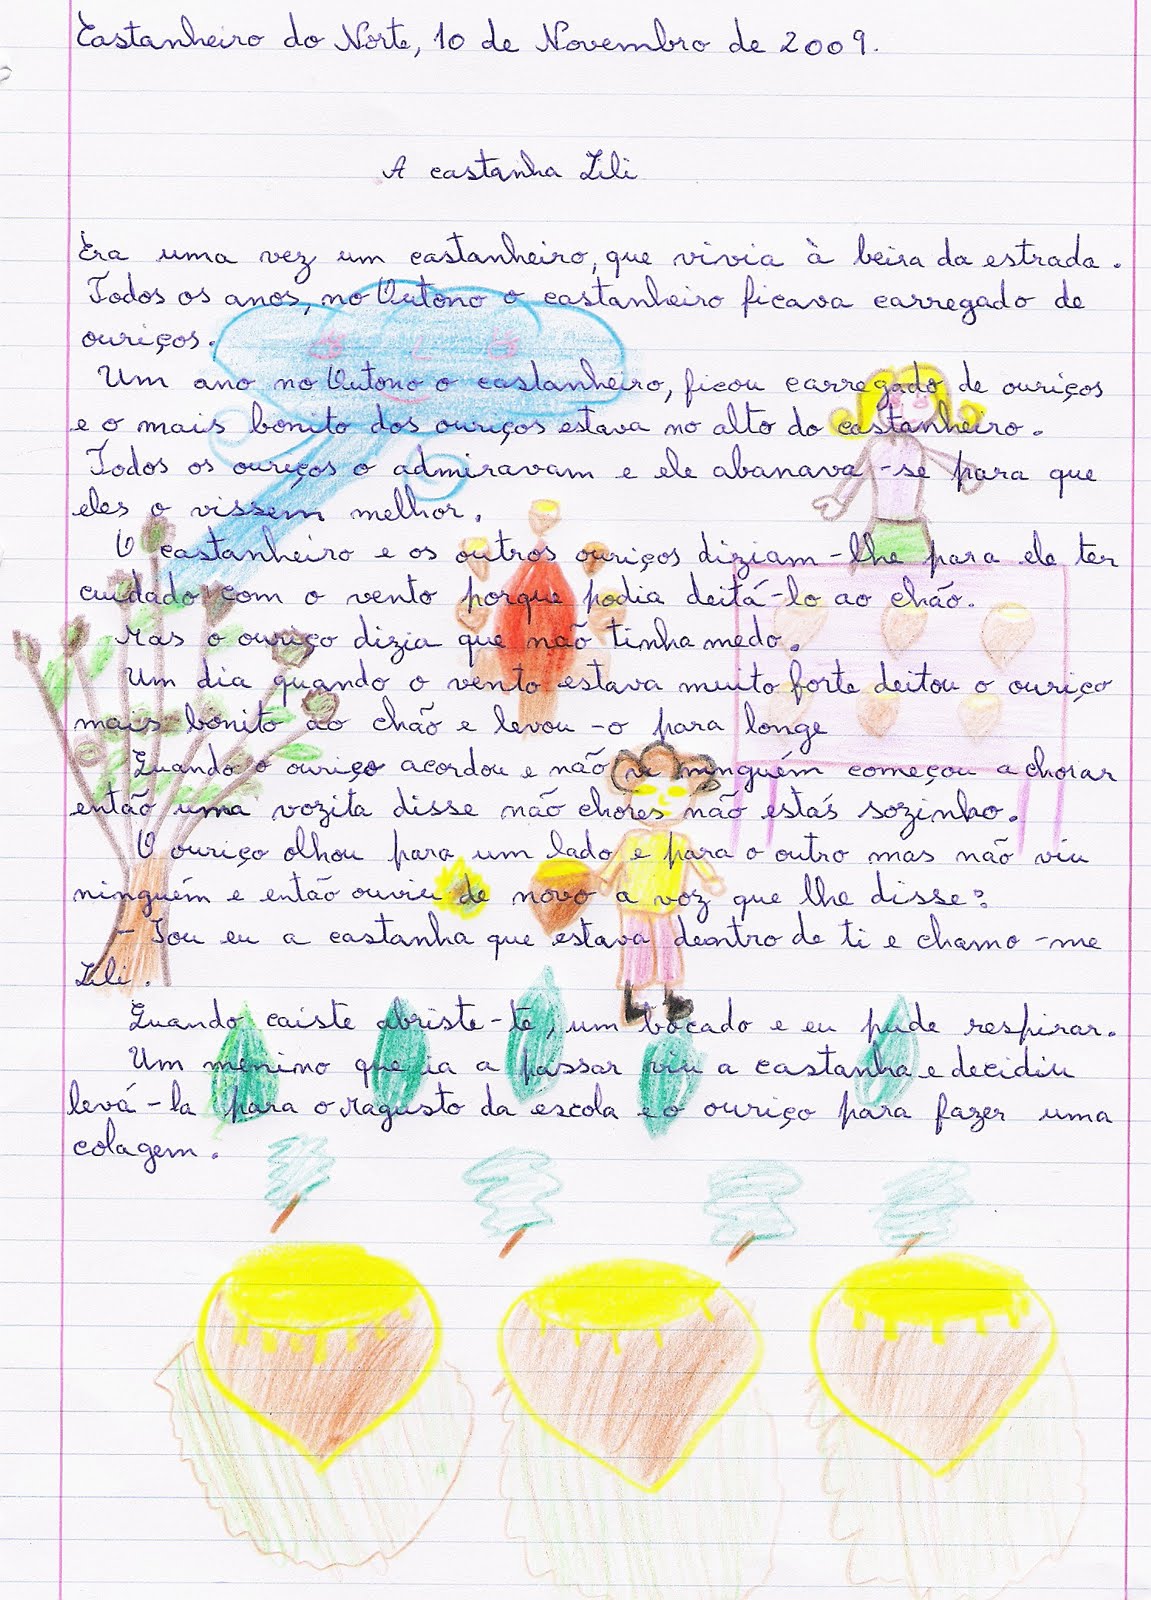 Castanheiro do Norte, 10 de Novembro de 2009.
A castanha Lili
Era uma vez um castanheiro, que vivia à beira da estrada.
Todos os anos, no Outono o castanheiro ficava carregado de
ouriços.
Um ano no Outono o castanheiro, ficou carregado de ouriços
e o mais bonito dos ouriços estava no alto do castanheiro.
Todos os ouriços o admiravam e ele abanava-se para que
eles o vissem melhor.
O castanheiro e os outros ouriços diziam-lhe para ele ter
cuidado com o vento porque podia deitá-lo ao chão.
Mas o ouriço dizia que não tinha medo.
Um dia quando o vento estava muito forte deitou o ouriço
mais bonito ao chão e levou-o para longe
Quando o ouriço acordou e não vi ninguém começou a chorar
então uma vozita disse não chores não estás sozinho.
O ouriço olhou para um lado e para o outro mas não viu
ninguém e então ouviu de novo a voz que lhe disse:
- Sou eu a castanha que estava dentro de ti e chamo-me
Lili.
Quando caiste abriste-te, um bocado e eu pude respirar.
Um menino que ia a passar viu a castanha e decidiu
levá-la para o magusto da escola e o ouriço para fazer uma
colagem.